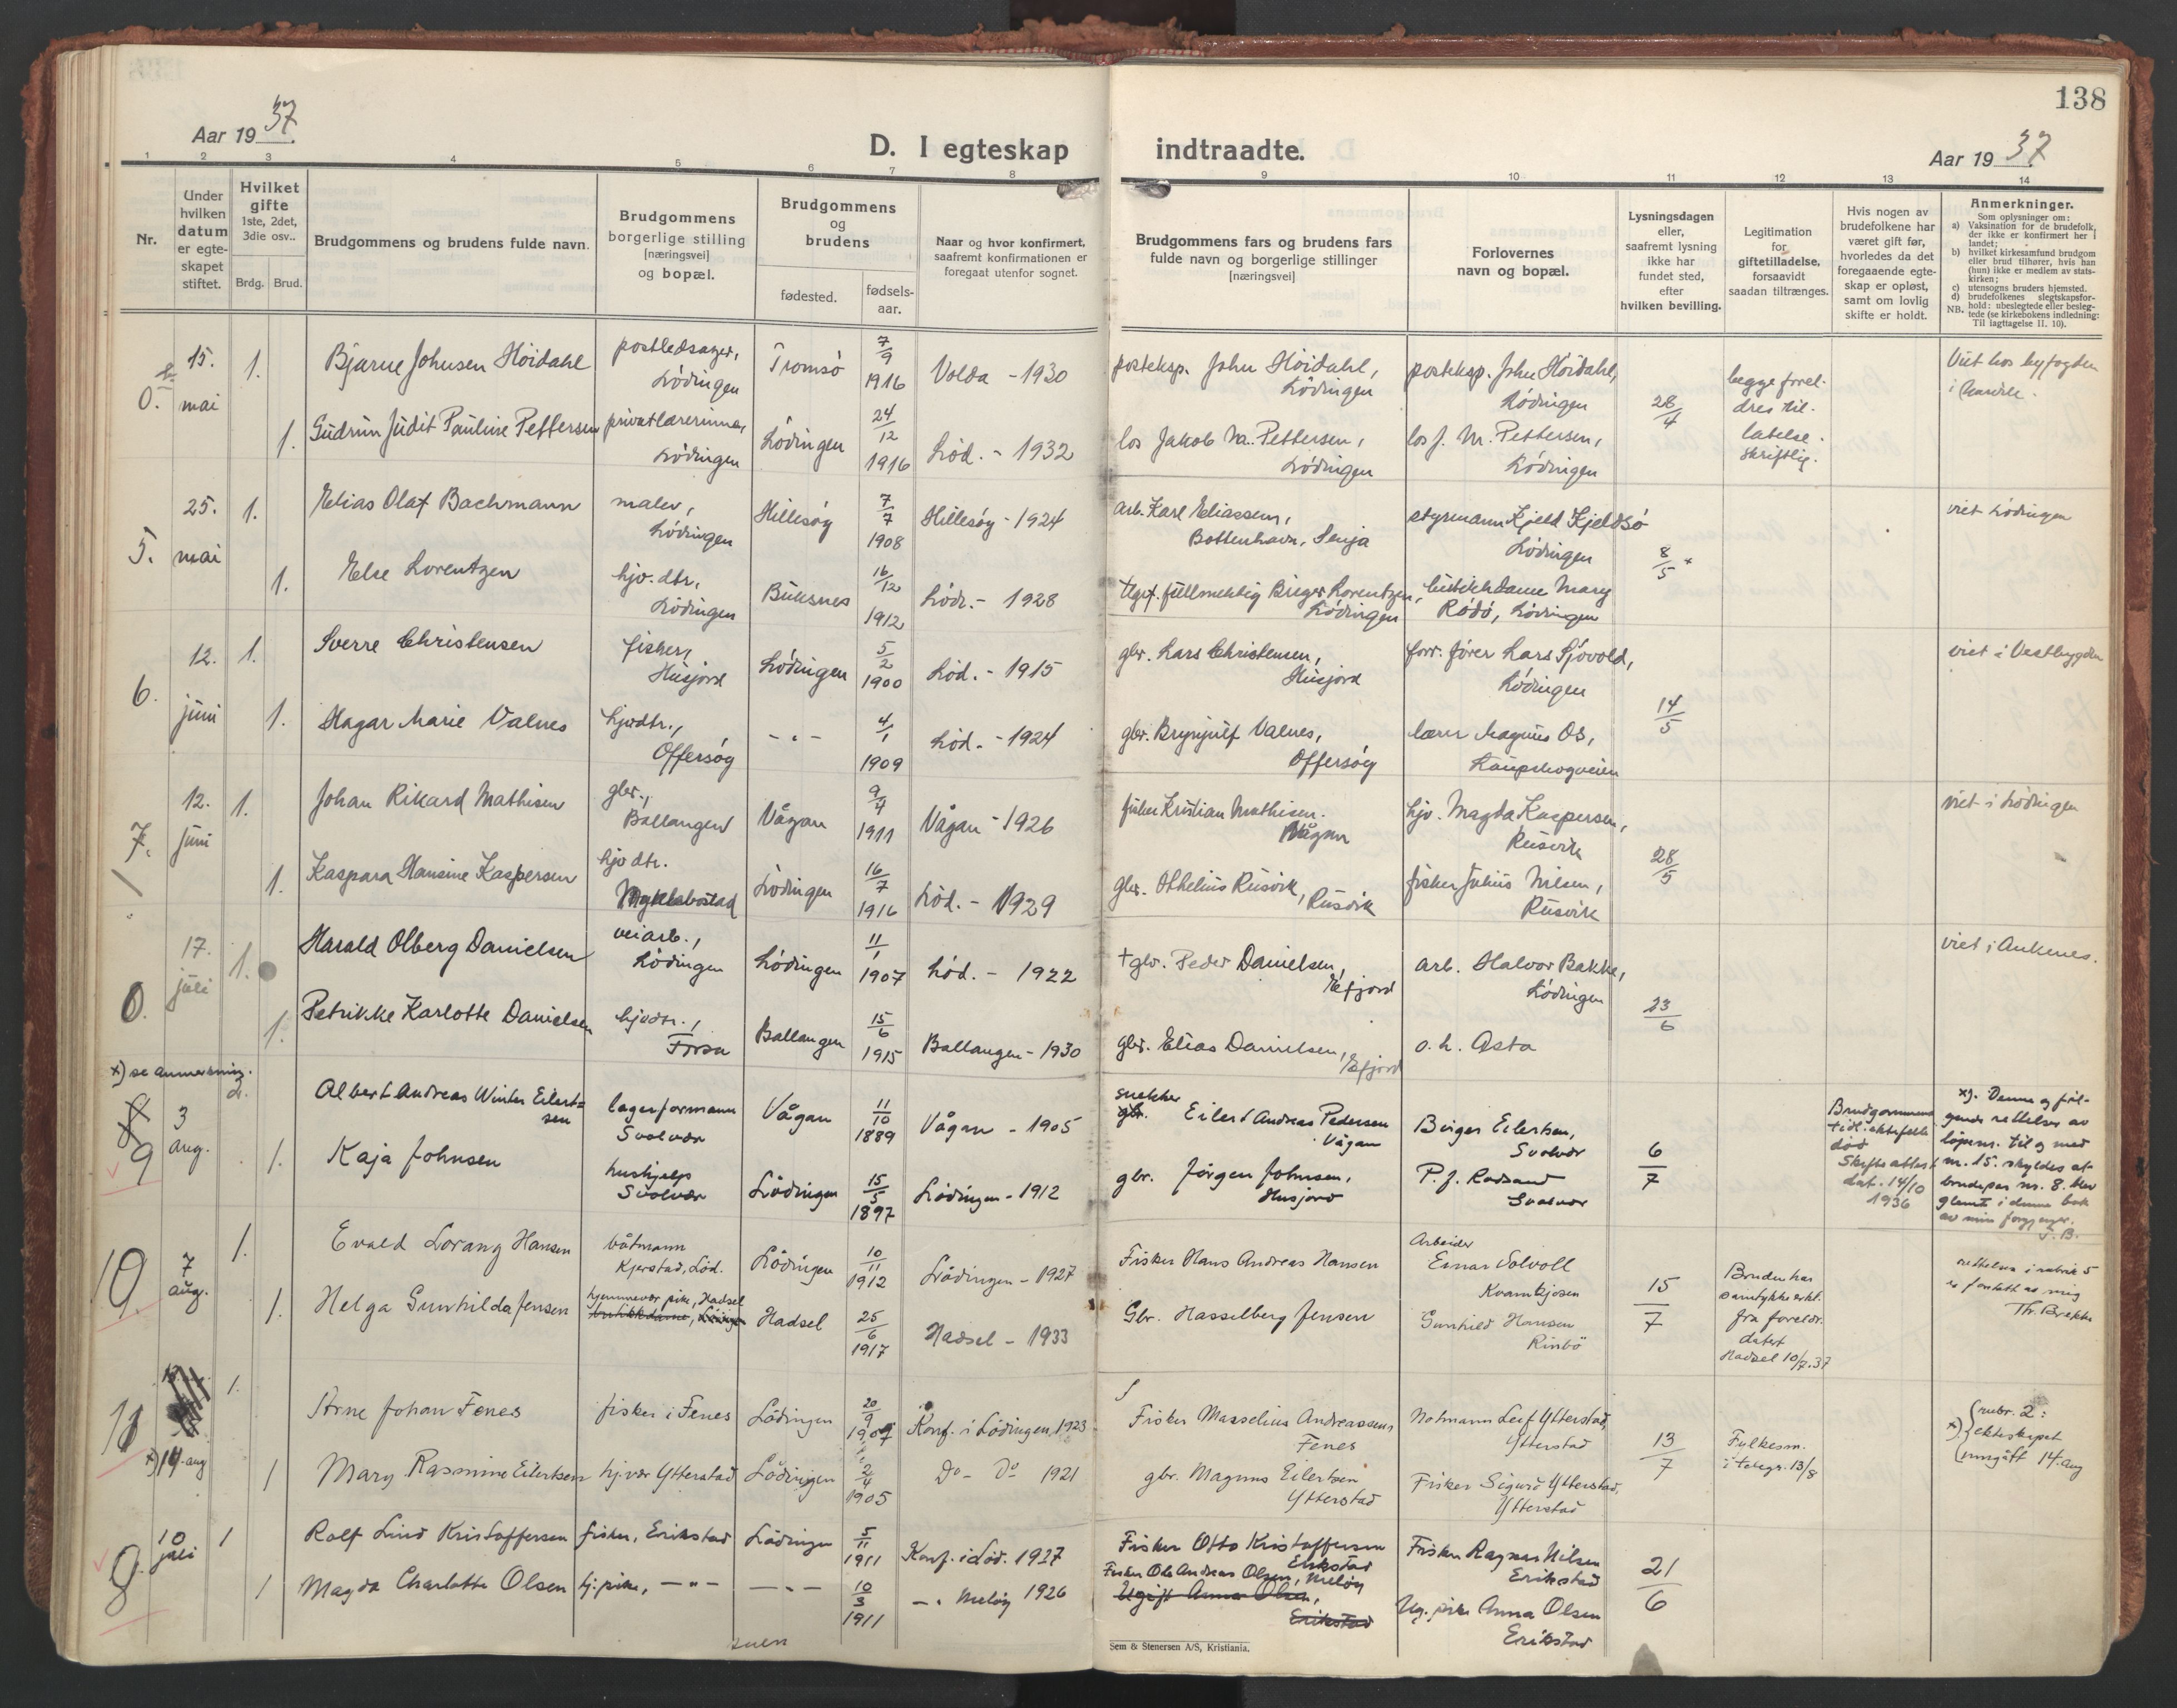 138
Aar 19 37.
D. I egteskap indtraadte.
Aar 19 37
1 2 3 4 5 6 7 8 9 10 11 12 13 14
Nr.
Under
hvilken
datum
er egte-
skapet
stiftet.
Hvilket
gifte
1ste, 2det,
3die osv..
Brdg. Brud.
Brudgommens og brudens fulde navn.
Brudgommens
borgerlige stilling
[næringsvei]
og bopæl.
Brudgommens
og
brudens
fødested.
fødsels-
aar.
Naar og hvor konfirmert,
saafremt konfirmationen er
foregaat utenfor sognet.
Brudgommens fars og brudens fars
fulde navn og borgerlige stillinger
[næringsvei]
Forlovernes
navn og bopæl.
Lysningsdagen
eller,
saafremt lysning
ikke har
fundet sted,
efter
hvilken bevilling.
Legitimation
for
giftetilladelse,
forsaavidt
saadan tiltrænges.
Hvis nogen av
brudefolkene har
været gift før,
hvorledes da det
foregaaende egte-
skap er opløst,
samt om lovlig
skifte er holdt.
Anmerkninger.
Som oplysninger om:
a) Vaksination for de brudefolk,
der ikke er konfirmert her i
landet;
b) hvilket kirkesamfund brudgom
eller brud tilhører, hvis han
(hun) ikke er medlem av stats-
kirken;
c) utensogns bruders hjemsted.
d) brudefolkenes slegtskapsfor-
hold: ubeslegtede eller besleg-
NB. tede (se kirkebokens indledning:
Til iagttagelse II. 10).
0. 15. mai 1. Bjarne Johnsen Höidahl
postledsager, Lödingen Tromsö 7/9 1916 Volda - 1930
posteksp. John Höidahl, Lödingen
posteksp. John Höidahl, Lödingen
28/4
begge forel-
dres til-
latelse.
skriftlig.
Viet hos byfogden
i
1. Gudrun Judit Pauline Pettersen
privatlærerinne, Lödingen Lödingen 24/12 1916 Löd. - 1932
los Jakob M. Pettersen, Lödingen
los J. M. Pettersen, Lödingen
5. 25. mai 1. Elias Olaf Bachmann
maler, Lödingen Hillesöy 7/7 1908 Hillesöy - 1924
arb. Karl Eliassen, Bottenhavn, Senja
styrmann Kjeld Kjeldsö Lödingen
8/5
viet Lödingen
1. Else Lorentzen
hjv. dtr, Lödingen Buksnes 16/12 1912 Lödr. - 1928
tlgrf. fullmektig Birger Lorentzen, Lödingen
butikkdame Mary Rödö, Lödingen
6. 12. juni 1. Sverre Christensen
fisker, Husjord Lödingen 5/2 1900 Löd. - 1915
gbr. Lars Christensen, Husjord
forr. förer Lars Sjövold, Lödingen
14/5
viet i Vestbygden
1. Hagar Marie Valnes
hjvdtr., Offersöy - " - 4/1 1909 Löd. - 1924
gbr. Brynjulf Valnes, Offersöy
lærer Magnus Os,
7. 12. juni 1. Johan Rikard Mathisen
gbr., Ballangen Vågan 9/4 1911 Vågan - 1926
fisker Kristian Mathisen. Vågan
hjv. Magda Kaspersen, Rusvik
28/5
viet i Lödingen
1. Kaspara Hansine Kaspersen
hjv dtr. Myklebostad Lödingen 16/7 1916 Löd. - 1929
gbr. Othelius Rusvik, Rusvik
fisker Julius Nilsen, Rusvik
0. 17. juli 1. Harald Olberg Danielsen
veiarb., Lödingen Lödingen 11/1 1907 Löd. - 1922
+ gbr. Peder Danielsen, Efjord
arb. Halvor Bakke, Lödingen
23/6
viet i Ankenes.
1. Petrikke Karlotte Danielsen
hjvdtr., Forsa Ballangen 15/6 1915 Ballangen - 1930
gbr. Elias Danielsen, Efjord
o. h. Asta
x) se anmerkning.
9 3 aug. 2. Albert Andreas Winter Eilert=
sen
lagerformann Svolvær Vågan 11/10 1889 Vågan - 1905
snekker
gbr. Eilert Andreas Pedersen Vågan
Birger Eilertsen, Svolvær
6/7
Brudgommens
tidl. ektefelle
död
Skifteattest
dat. 14/10
1936
x). Denne og föl-
gende rettelser av
löpenr. til og med
nr. 15. skyldes at
brudepar nr. 8. blev
glemt i denne bok
av min forgjenger.
T. B.
1. Kaja Johnsen
hushjelp Svolvær Lödingen 15/5 1897 Lödingen - 1912
gbr. Jörgen Johnsen, Husjord
P. J. Rødsand Svolvær
10. 7 aug. 1. Evald Lorang Hansen
båtmann Kjerstad, Löd. Lödingen 10/11 1912 Lödingen - 1927
Fisker Hans Andreas Hansen
Arbeider Einar Solvoll Kvannkjosen
15/7
Bruden har
samtykke erkl.
fra foreldr.
datert
Hadsel 10/7.37
rettelsen i rubrik 5
er foretatt av meg
Th. Brekke
1. Helga Gunhilda Jensen
hjemmevær. pike, Hadsel
butikkdame, Lödingen
Hadsel 25/6 1917 Hadsel - 1933
Gbr. Hasselberg Jensen
Gunhild Hansen Rinbö
11 x) 14. aug 1. Arne Johan Fenes
fisker i Fenes Lödingen 20/9 1907 Konf. i Lödingen 1923
Fisker Masselius Andreassen, Fenes
Notmann Leif Ytterstad, Ytterstad
13/7
Fylkesm.
i telegr. 13/8
x) rubr. 2:
ekteskapet
inngått 14. aug
1 Mary Rasmine Eilertsen
hj.vær Ytterstad Lödingen 2/4 1905 Do - Do 1921
gbr. Magnus Eilertsen Ytterstad
Fisker Sigurd Ytterstad, Ytterstad
8. 10 juli 1 Rolf Lind Kristoffersen
fisker, Erikstad Lödingen 5/11 1911 Konf. i Löd. 1927
Fisker Otto Kristoffersen Erikstad
Fisker Ragnar Nilsen Erikstad
21/6
1 Magda Charlotte Olsen
hj. pike, - " - - " - 10/3 1911 - " Melöy 1926
Fisker Ole Andreas Olsen, Melöy
Ugift Anna Olsen, Erikstad
Ug. pike Anna Olsen Erikstad
Sem & Stenersen A/S, Kristiania.